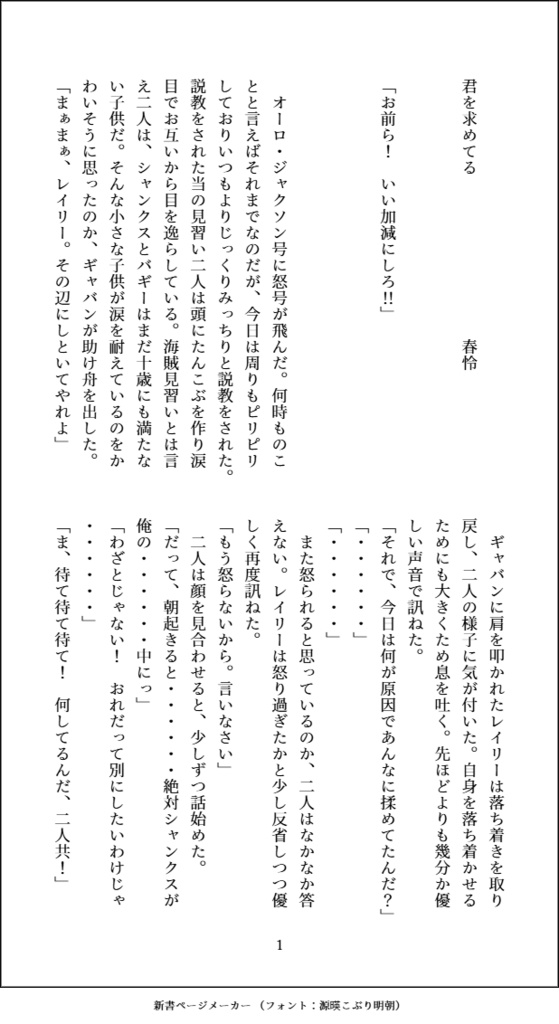 君を求めてる　　　　　　　　春怜
「お前ら！　いい加減にしろ!!」
　オーロ・ジャクソン号に怒号が飛んだ。何時ものこ
とと言えばそれまでなのだが、今日は周りもピリピリ
しておりいつもよりじっくりみっちりと説教をされた。
説教をされた当の見習い二人は頭にたんこぶを作り涙
目でお互いから目を逸らしている。海賊見習いとは言
え二人は、シャンクスとバギーはまだ十歳にも満たな
い子供だ。そんな小さな子供が涙を耐えているのをか
わいそうに思ったのか、ギャバンが助け舟を出した。
「まぁまぁ、レイリー。その辺にしといてやれよ」
　ギャバンに肩を叩かれたレイリーは落ち着きを取り
戻し、二人の様子に気が付いた。自身を落ち着かせる
ためにも大きくため息を吐く。先ほどよりも幾分か優
しい声音で訊ねた。
「それで、今日は何が原因であんなに揉めてたんだ？」
「・・・・・・」
「・・・・・・」
　また怒られると思っているのか、二人はなかなか答
えない。レイリーは怒り過ぎたかと少し反省しつつ優
しく再度訊ねた。
「もう怒らないから。言いなさい」
　二人は顔を見合わせると、少しずつ話始めた。
「だって、朝起きると・・・・・・絶対シャンクスが
俺の・・・・・・中にっ」
「わざとじゃない！　おれだって別にしたいわけじゃ
・・・・・・」
「ま、待て待て待て！　何してるんだ、二人共！」
1
新書ページメーカー （フォント：源暎こぶり明朝）